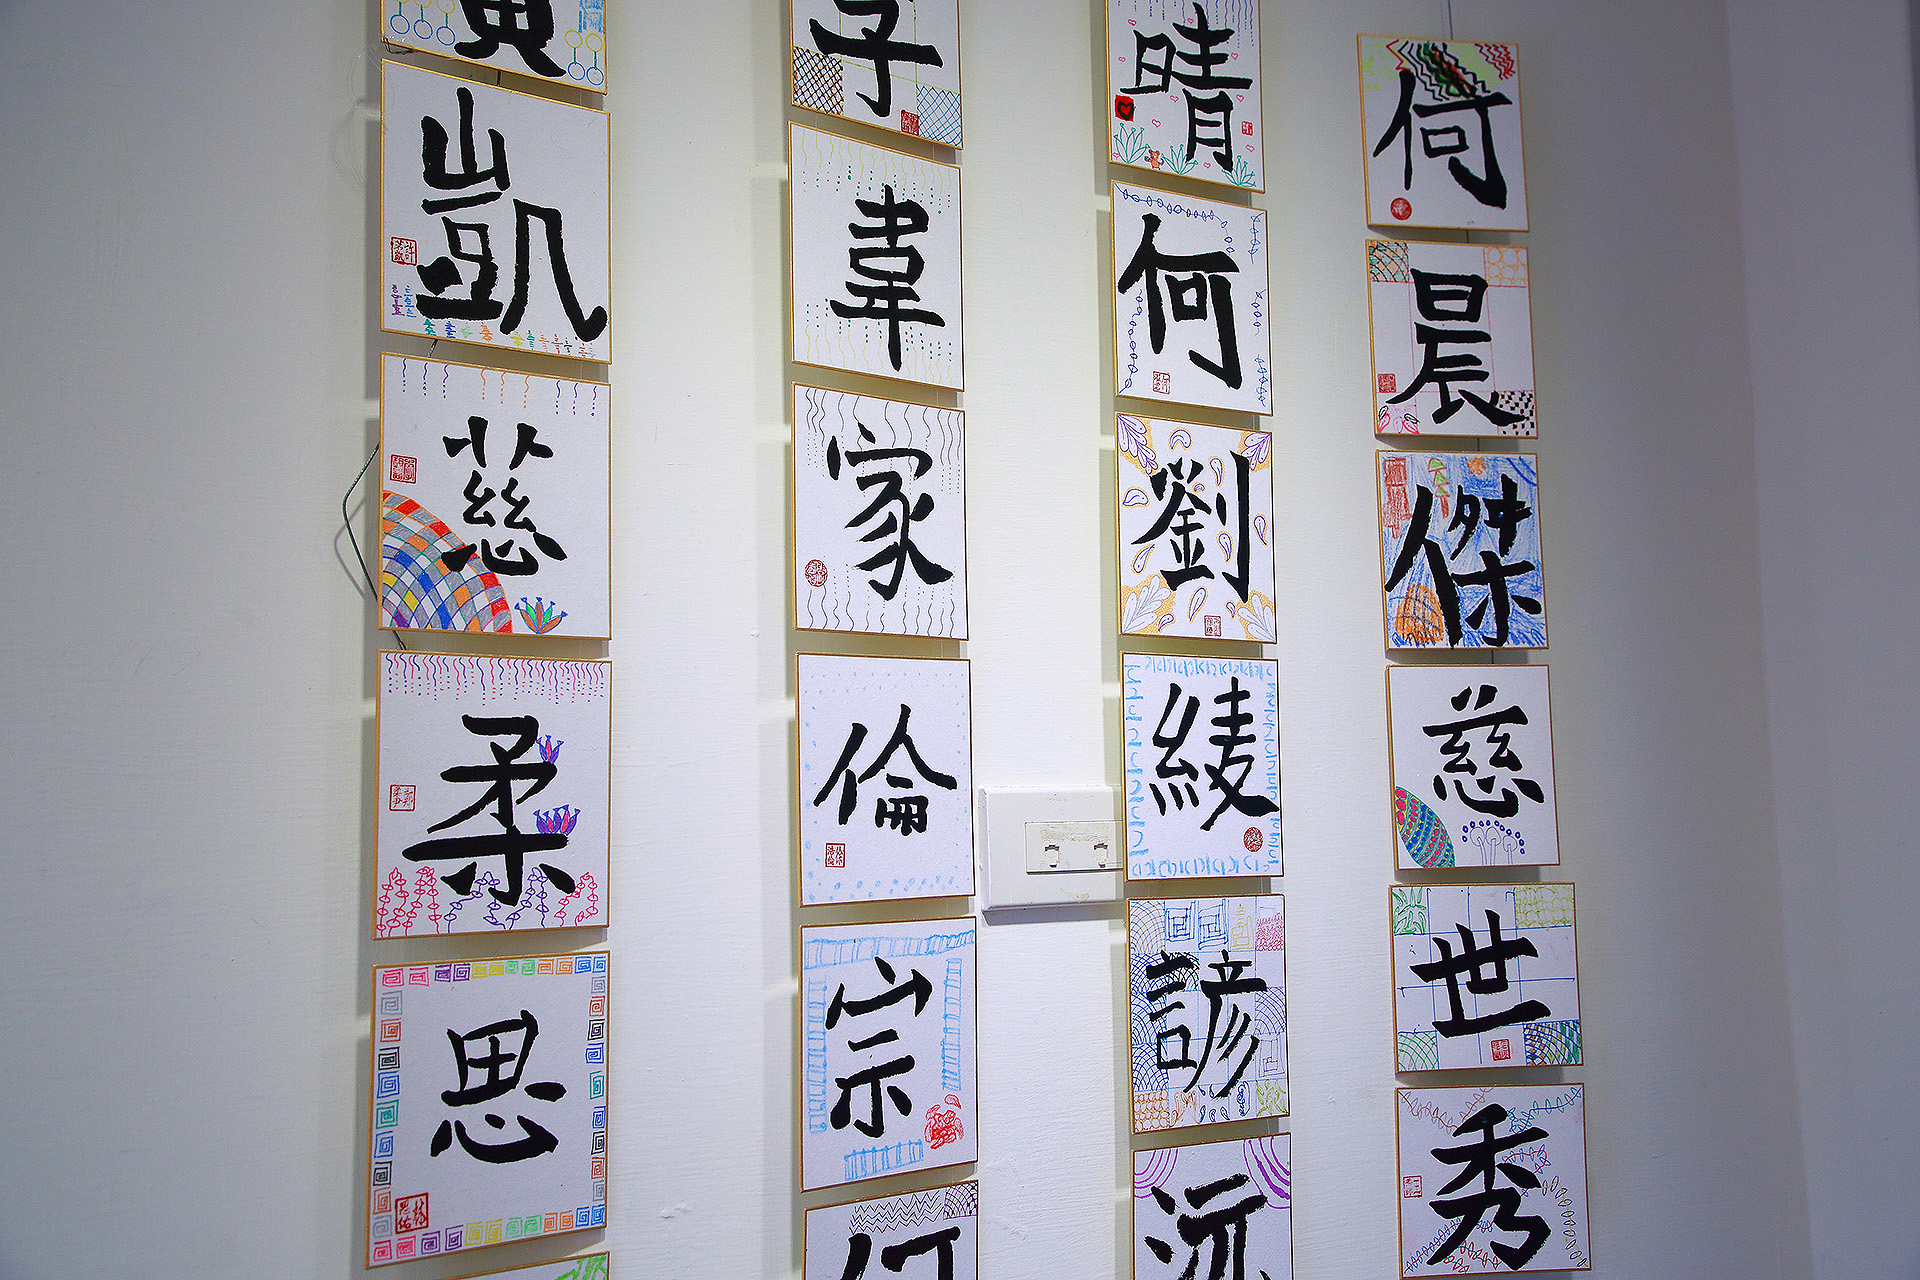 凱
慈
柔
思
子
韋
家
倫
宗
何
晴
何
劉
綾
諺
沅
何
晨
傑
慈
世
秀